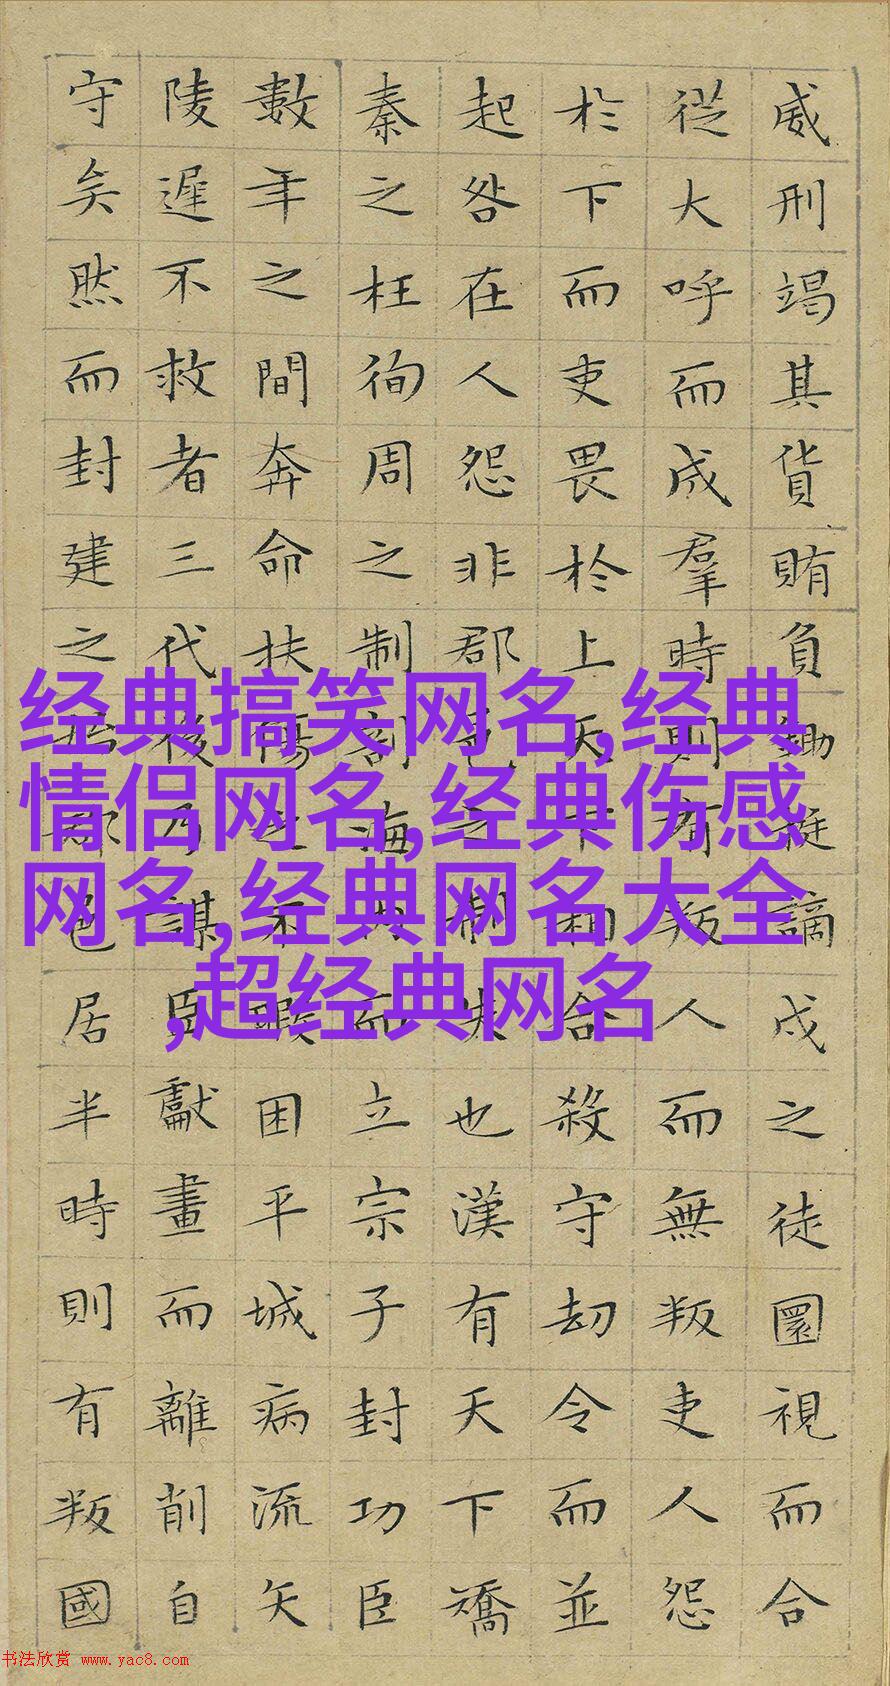 威刑竭其貨賄負鋤梃謫戍之徒圜視而合
從大呼而成羣時則有叛人而無叛吏人怨
於下而吏畏於上天下相合殺守劫令而並
起咎在人怨非郡邑之制失也漢有天下矯
秦之枉徇周之制剖海內而立宗子封功臣
數年之間奔命扶傷之不暇困平城病流矢
陵遲不救者三代後乃謀臣獻畫而離削自
守矣然而封建之始郡邑居半時則有叛國
经典搞笑网名,经典
情侣网名,经典伤感
网名,经典网名大全
,超经典网名
书法欣赏 www.yac8.com